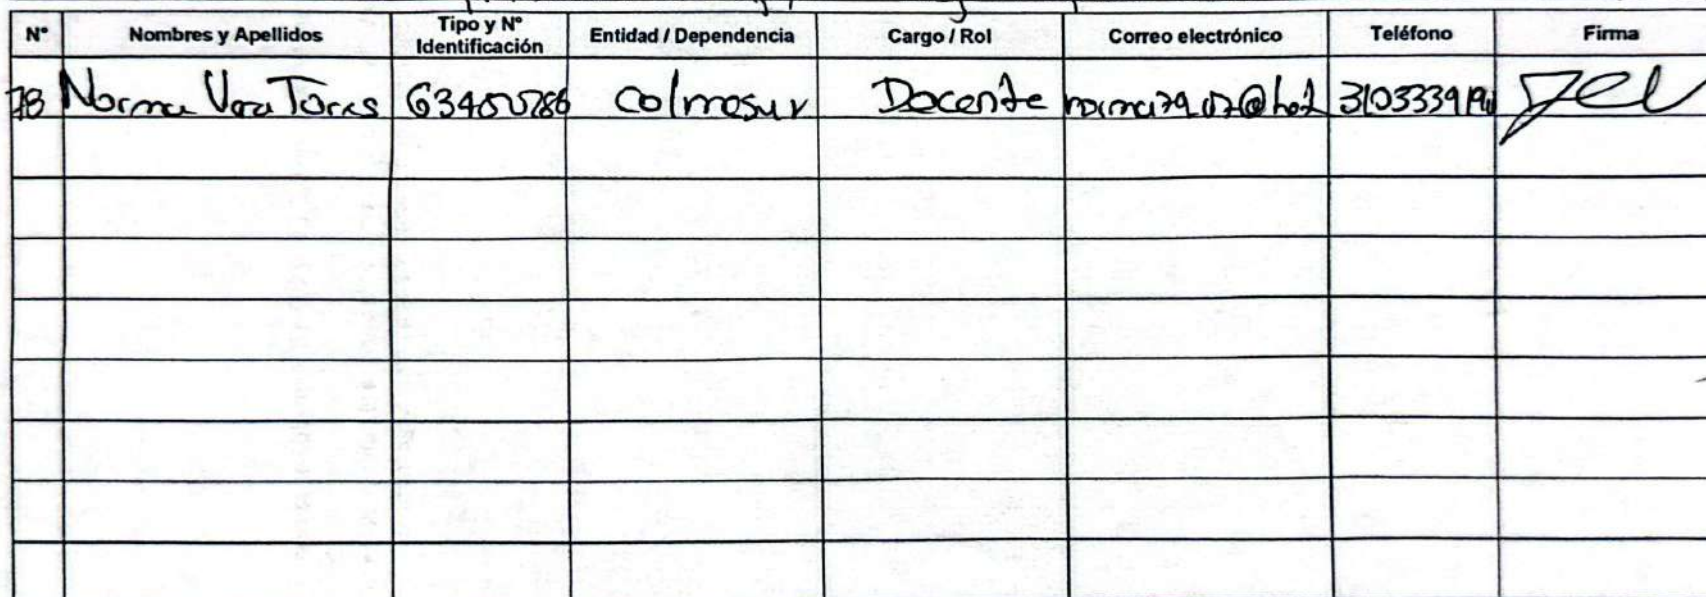 N° Nombres y Apellidos Tipo y N° Identificación Entidad / Dependencia Cargo / Rol Correo electrónico Teléfono Firma
78 Norma Vera Torres Colmesur Docente